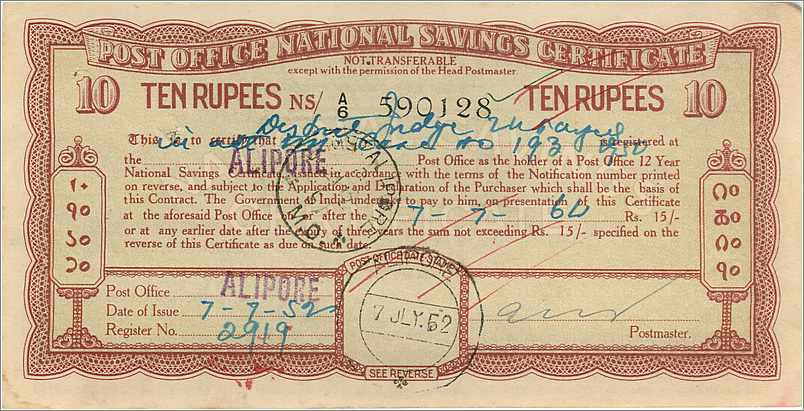 POST OFFICE NATIONAL SAVINGS CERTIFICATE
NOT TRANSFERABLE
except with the permission of the Head Postmaster.
10 TEN RUPEES NS/ A/6 590128 TEN RUPEES 10
This is to certify that District Judge registered at
the ALIPORE Post Office as the holder of a Post Office 12 Year
National Savings Certificate issued in accordance with the terms of the Notification number printed
on reverse, and subject to the Application and Declaration of the Purchaser which shall be the basis of
this Contract. The Government of India undertake to pay to him, on presentation of this Certificate
at the aforesaid Post Office on or after the 7-7-64 Rs. 15/-
or at any earlier date after the expiry of three years the sum not exceeding Rs. 15/- specified on the
reverse of this Certificate as due on such date.
१०
১০
POST OFFICE DATE STAMP
Post Office ALIPORE
Date of Issue 7-7-52
7 JLY.52
Register No. 2919
Postmaster.
SEE REVERSE